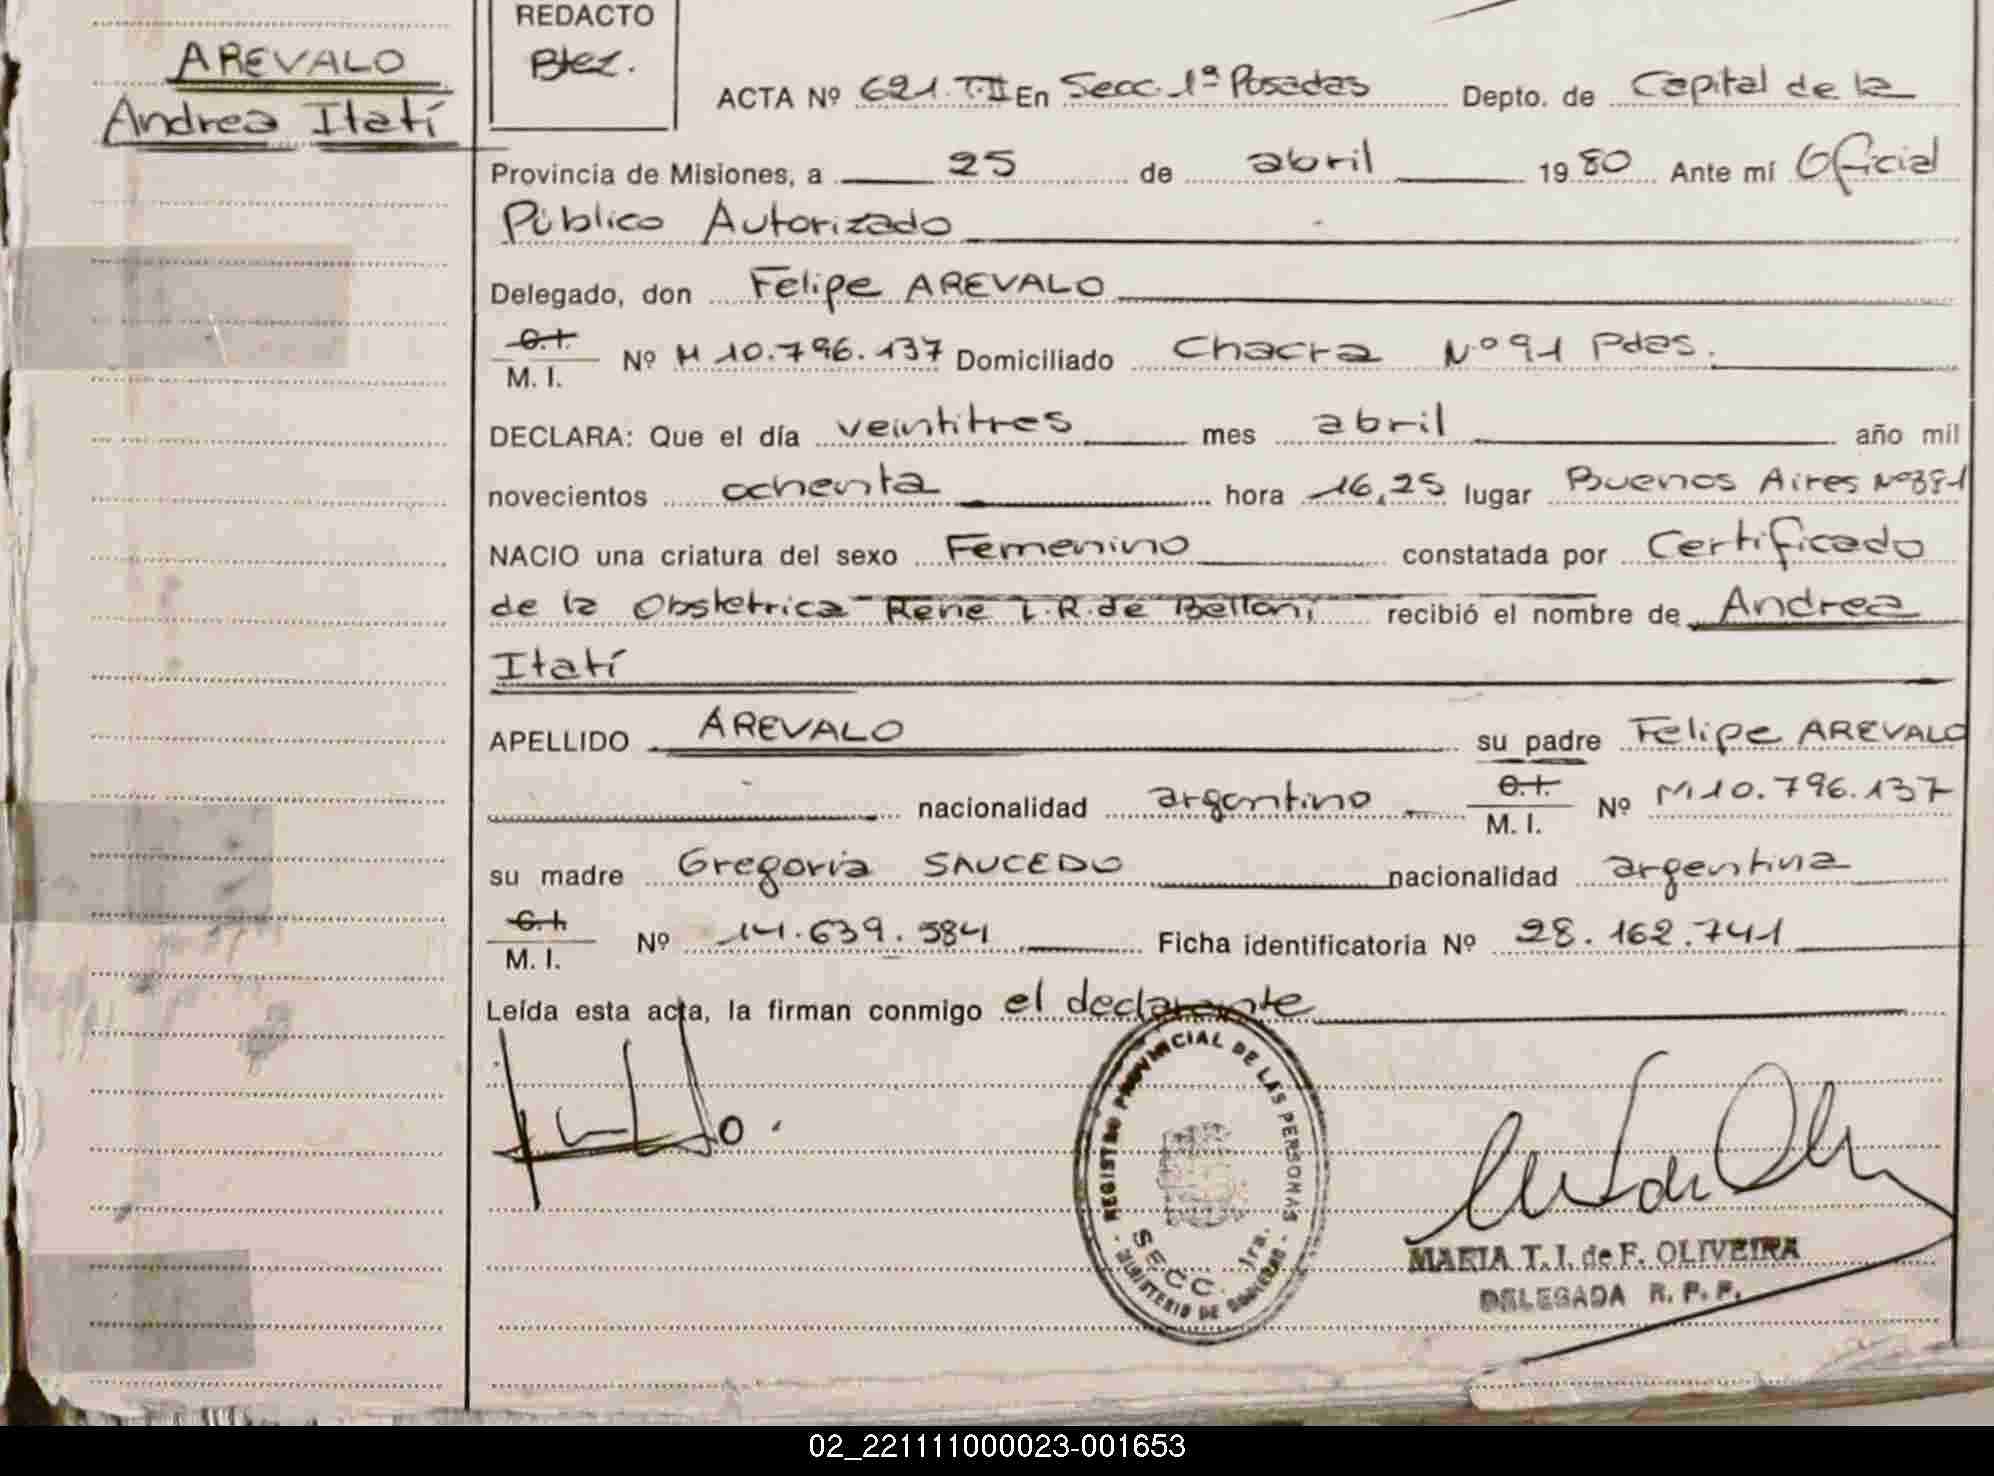 AREVALO
Andrea Itatí
REDACTO
ACTA Nº 621.T.II En Secc. 1ª Posadas Depto. de Capital de la
Provincia de Misiones, a 25 de abril 1980 Ante mí Oficial
Público Autorizado
Delegado, don Felipe AREVALO
C.I.
M. I. Nº M 10.796.137 Domiciliado Chacra Nº 91 Pdas.
DECLARA: Que el día veintitres mes abril año mil
novecientos ochenta hora 16,25 lugar Buenos Aires Nº381
NACIO una criatura del sexo Femenino constatada por Certificado
de la Obstetrica Rene I.R.de Belloni recibió el nombre de Andrea
Itatí
APELLIDO AREVALO su padre Felipe AREVALO
nacionalidad argentino C.I.
M. I. Nº M10.796.137
su madre Gregoria SAUCEDO nacionalidad argentina
C.I.
M. I. Nº 14.639.584 Ficha identificatoria Nº 28.162.741
Leída esta acta, la firman conmigo el declarante
REGISTRO PROVINCIAL DE LAS PERSONAS
SECC. 1ra.
MINISTERIO DE GOBIERNO
MARIA T. I. de F. OLIVEIRA
DELEGADA R. P. P.
02_221111000023-001653